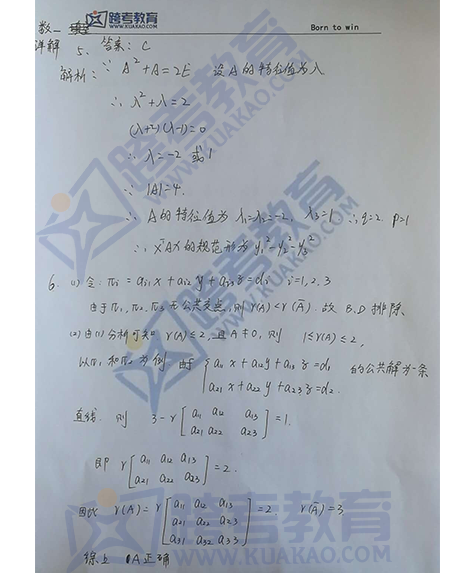 跨考教育
WWW.KUAKAO.COM
Born to win
数一
详解 5、答案: C
解析: ∵ A²+A=2E 设A的特征值为λ
∴ λ²+λ=2
(λ+2)(λ-1)=0
∴ λ=-2 或1
∵ |A|=4.
∴ A的特征值为 λ₁=λ₂=-2, λ₃=1 ∴ q=2. p=1
∴ xᵀAx的规范形为 y₁²-y₂²-y₃²
6. (1) 令: π_i = a_{i1}x + a_{i2}y + a_{i3}z = d_i i=1,2,3
由于π₁,π₂,π₃ 无公共交点,则 r(A)<r(Ā). 故 B.D 排除、
(2) 由(1)分析可知 r(A)≤2,且 A≠0, 则 1≤r(A)≤2,
以π₁和π₂为例 由于 { a₁₁x + a₁₂y + a₁₃z = d₁ 的公共解为一条
a₂₁x + a₂₂y + a₂₃z = d₂.
直线. 则 3-r [ a₁₁ a₁₂ a₁₃
a₂₁ a₂₂ a₂₃ ] =1.
即 r [ a₁₁ a₁₂ a₁₃
a₂₁ a₂₂ a₂₃ ] =2.
因此 r(A) = r [ a₁₁ a₁₂ a₁₃
a₂₁ a₂₂ a₂₃ =2 r(Ā)=3
a₃₁ a₃₂ a₃₃ ]
综上 A正确
跨考教育
WWW.KUAKAO.COM